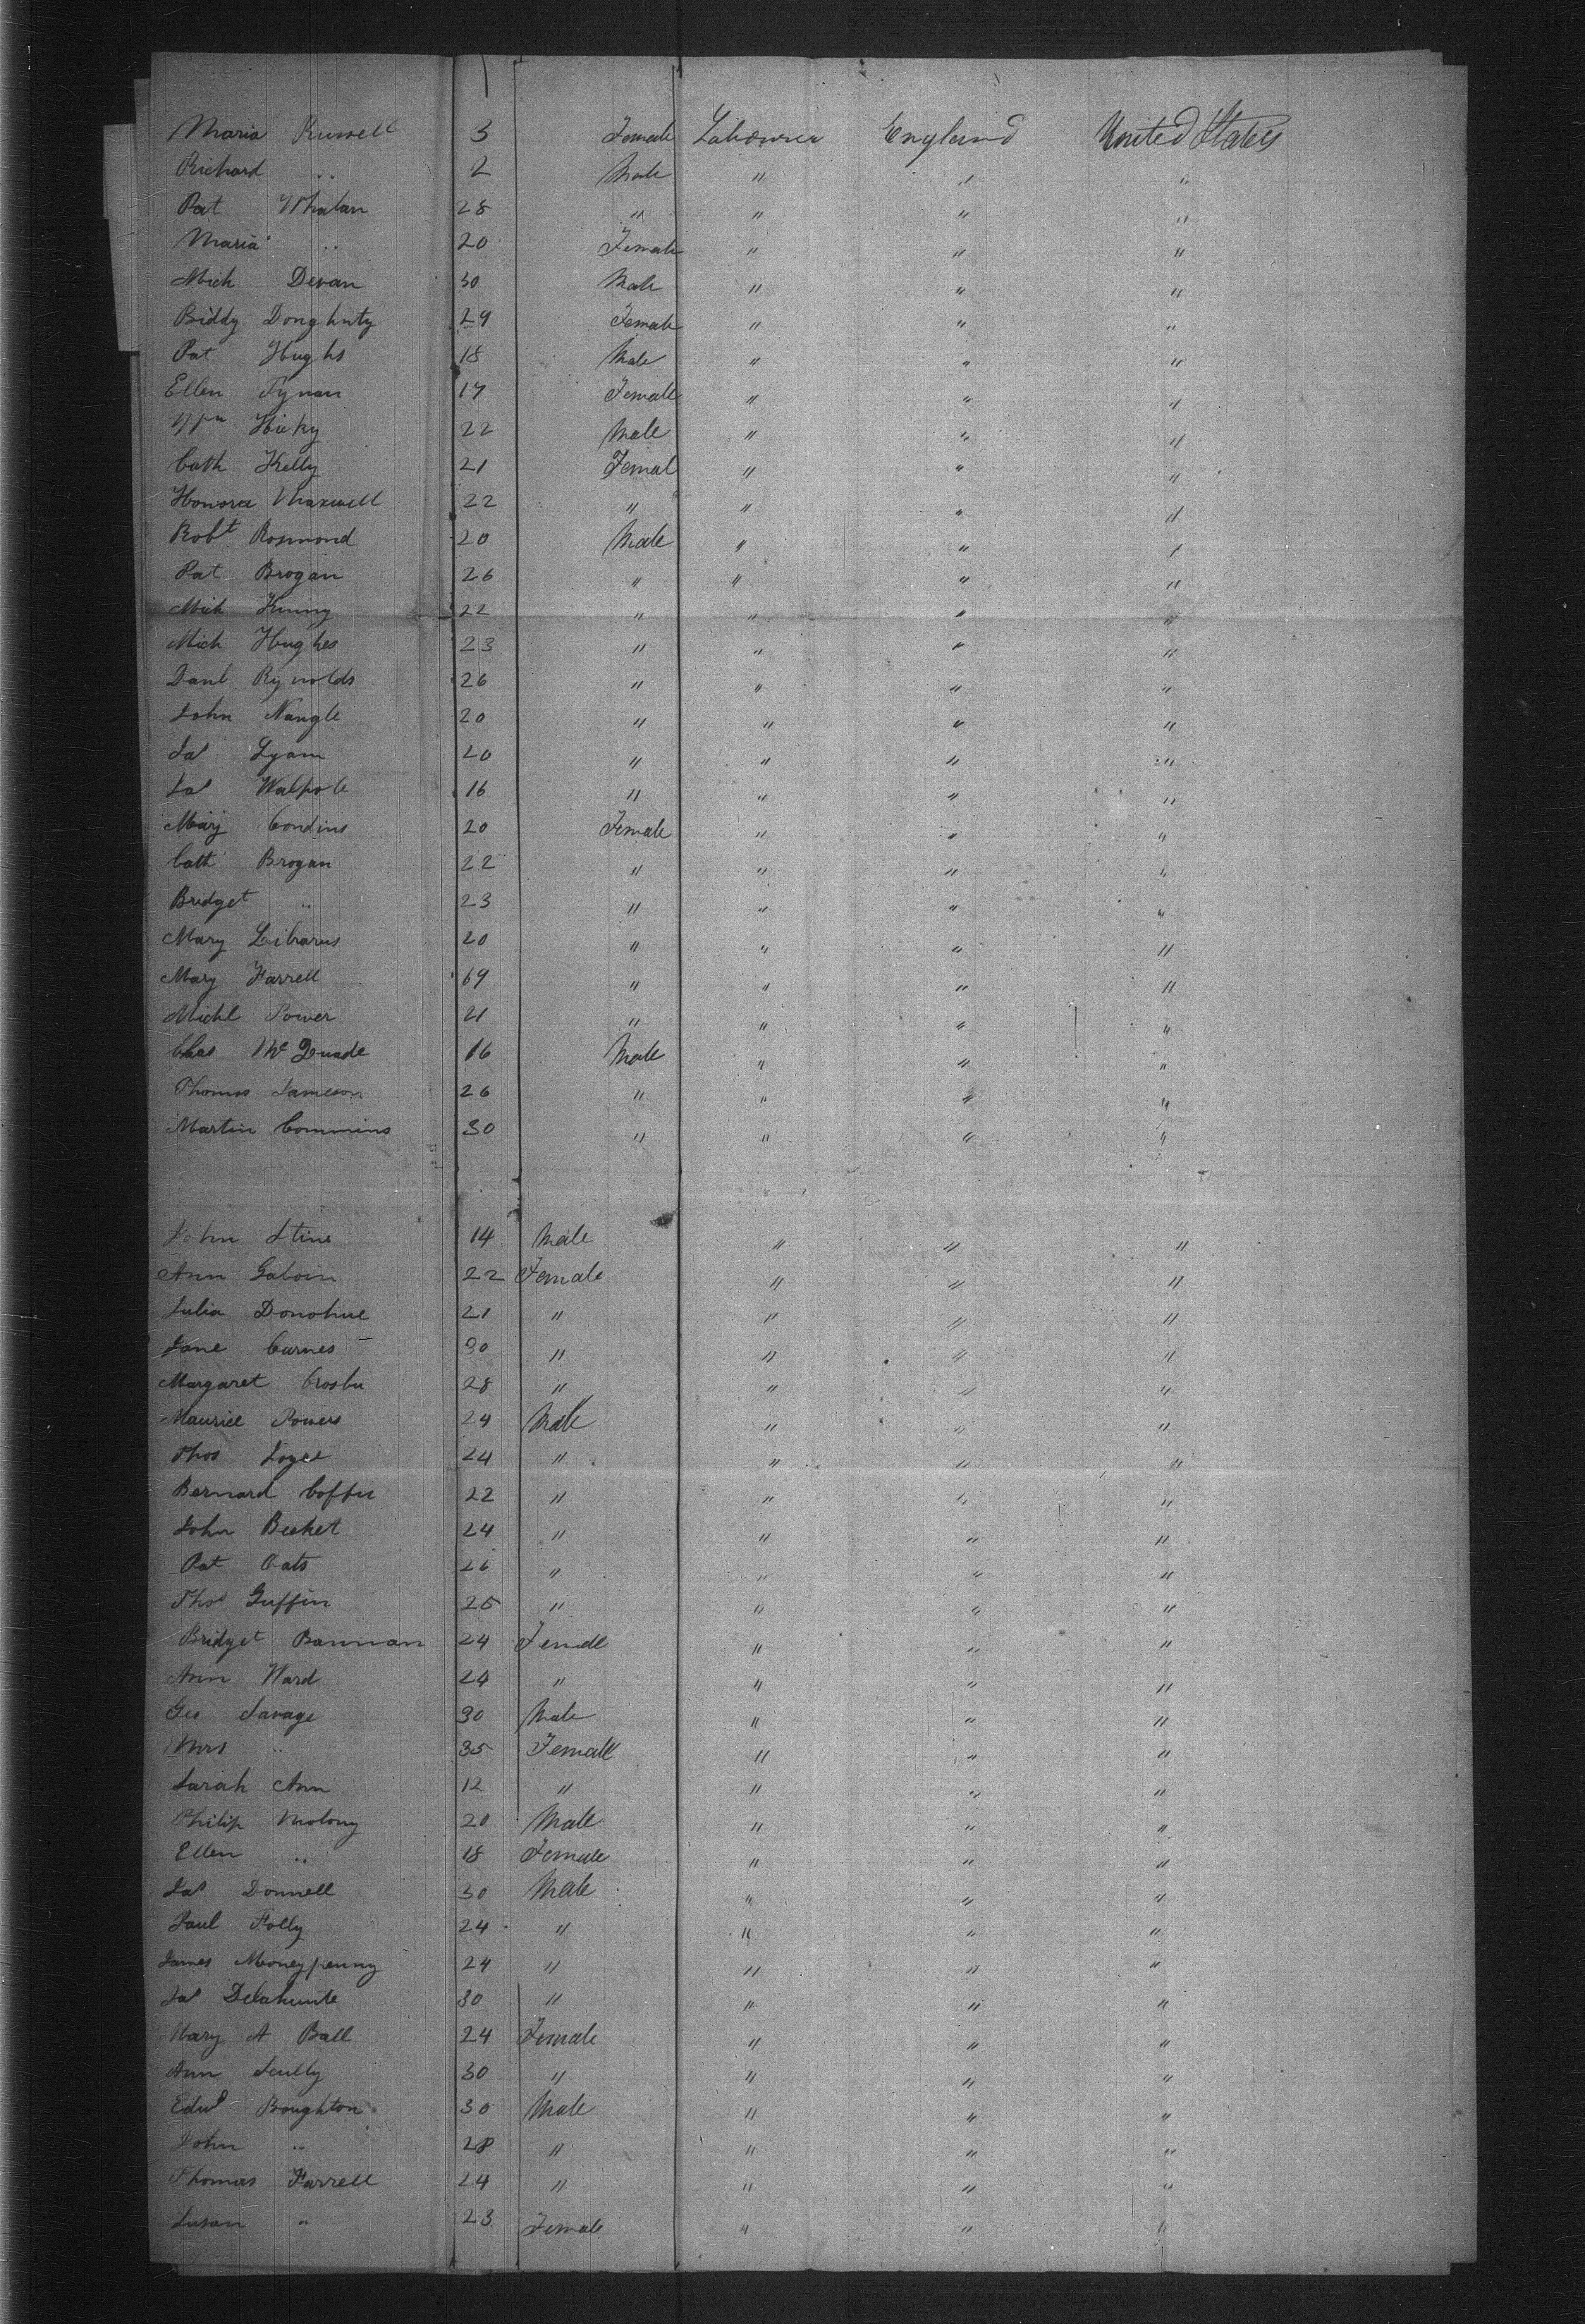 Maria Russell 3 Female Labourer England United States
Richard " 2 Male " " "
Pat Whalan 28 " " " "
Maria " 20 Female " " "
Mich Devan 30 Male " " "
Biddy Doughuty 29 Female " " "
Pat Hughs 18 Male " " "
Ellen Tynan 17 Female " " "
Wm Hicky 22 Male " " "
Cath Kelly 21 Femal " " "
Honora Maxwell 22 " " " "
Robt Rosmond 20 Male " " "
Pat Brogan 26 " " " "
Mich Kenny 22 " " " "
Mich Hughes 23 " " " "
Danl Rynolds 26 " " " "
John Nangle 20 " " " "
Jas Lyam 20 " " " "
Jas Walpole 16 " " " "
Mary Condins 20 Female " " "
Cath Brogan 22 " " " "
Bridget " 23 " " " "
Mary 20 " " " "
Mary Farrell 69 " " " "
Michl Power 21 " " " "
Chas McQuade 16 Male " " "
Thomas Jameson 26 " " " "
Martin Commins 30 " " " "
John Stine 14 Male " " "
Ann 22 Female " " "
Julia Donohue 21 " " " "
Jane Carnes 30 " " " "
Margaret 28 " " " "
Maurice Powers 24 Male " " "
Thos Joyce 24 " " " "
Bernard 22 " " " "
John Becket 24 " " " "
Pat Oats 26 " " " "
Thos Guffin 25 " " " "
Bridget Bannan 24 Female " " "
Ann Ward 24 " " " "
Geo Savage 30 Male " " "
Mrs " 35 Female " " "
Sarah Ann 12 " " " "
Philip Molony 20 Male " " "
Ellen " 18 Female " " "
Jas Donnell 30 Male " " "
Paul Folly 24 " " " "
James Moneypenny 24 " " " "
Jas Delahunte 30 " " " "
Mary A Ball 24 Female " " "
Ann Scully 30 " " " "
Edwd Boughton 30 Male " " "
John " 28 " " " "
Thomas Farrell 24 " " " "
Susan " 23 Female " " "